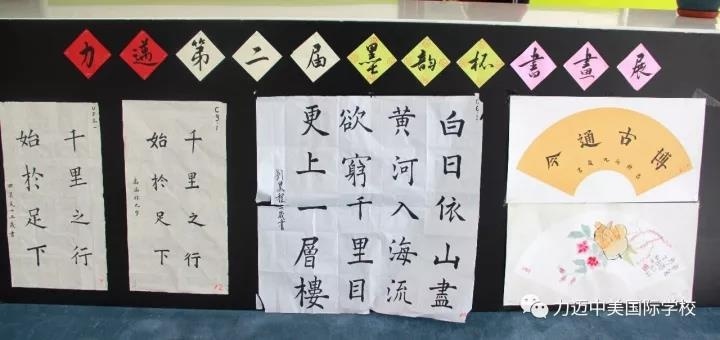 力邁第二届墨韵杯書畫展
千里之行
始於足下
千里之行
始於足下
C571
白日依山盡
黄河入海流
欲窮千里目
更上一層樓
博古通今
力迈中美国际学校